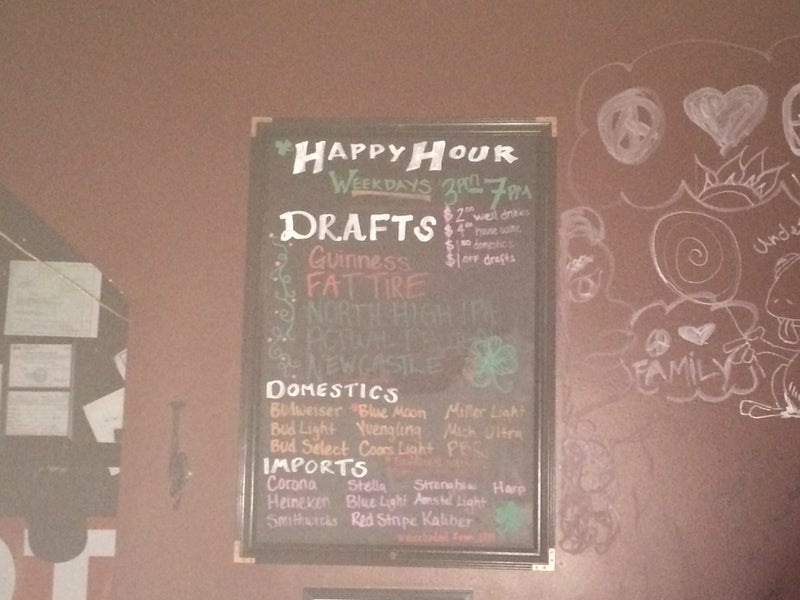 HAPPY HOUR
WEEKDAYS 3PM-7PM
$2.00 well drinks
$4.00 house wine
$1.50 domestics
$1 OFF drafts
DRAFTS
Guinness
FAT TIRE
NORTH HIGH IPA
ACTUAL
NEWCASTLE
DOMESTICS
Budweiser Blue Moon Miller Light
Bud Light Yuengling Mich Ultra
Bud Select Coors Light PBR
IMPORTS
Corona Stella Strongbow Harp
Heineken Blue Light Amstel Light
Smithwicks Red Stripe Kaliber
FAMILY